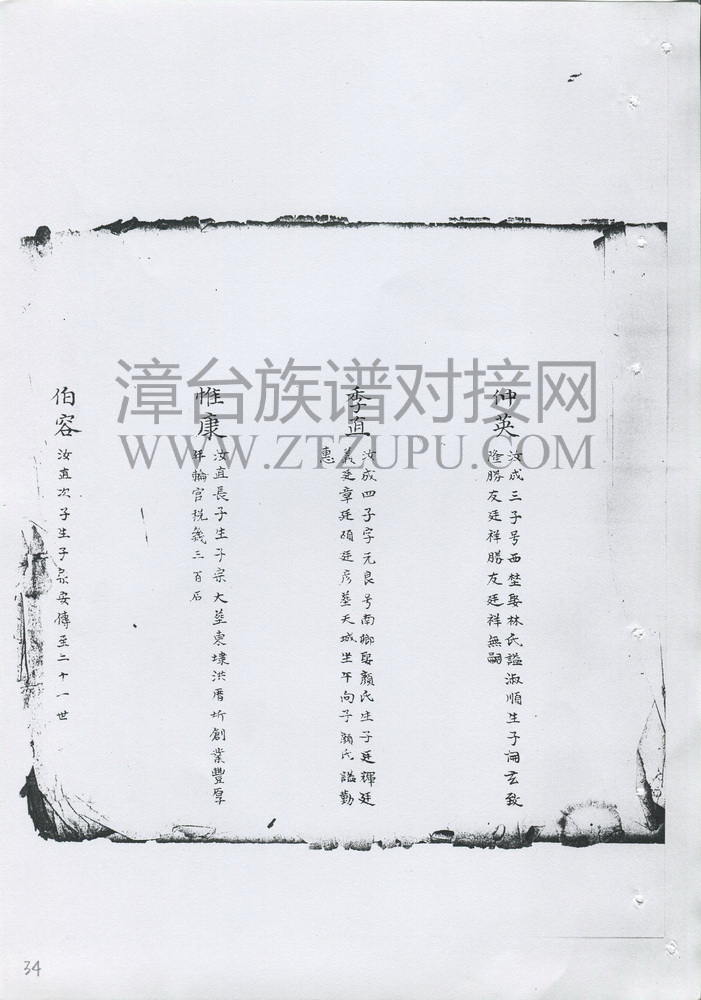 仲英
汝成三子号西埜娶林氏謚淑順生子詞玄致
逢勝友廷祥勝友廷祥無嗣
季直
汝成四子字元良号南鄉娶顏氏生子廷輝廷
義廷章廷碩廷彥塟天城坐午向子顏氏謚勤
惠
惟康
汝直長子生子宗大塟東壈洪厝圻創業豐厚
年輪官稅粄三百石
伯容
汝直次子生子宗安傳至二十一世
漳台族谱对接网
WWW.ZTZUPU.COM
34